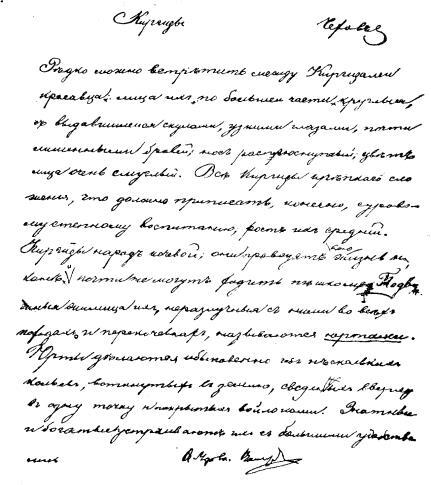 Киргизы
Рѣдко можно встрѣтить между Киргизами
красавца: лица ихъ по большей части круглыя,
съ выдавшимися скулами, узкими глазами, почти
лишенными бровей; носъ расплюснутый; цвѣтъ
лица очень смуглый. Всѣ Киргизы крѣпкаго сло
женія, что должно приписать, конечно, сурово
му степному воспитанію, ростъ ихъ средній.
Киргизы народъ кочевой; они проводятъ жизнь на
конѣ и почти не могутъ ходить пѣшкомъ. Подвиж
жилища ихъ, неразлучныя съ ними во всѣхъ
и перекочевкахъ, называются юртами.
Юрты дѣлаются обыкновенно изъ нѣсколькихъ
кольевъ, воткнутыхъ въ землю, сведенныхъ вверху
въ одну точку и покрытыхъ войлоками. Знатные
и богатые устраиваютъ ихъ съ большими удобства
ми